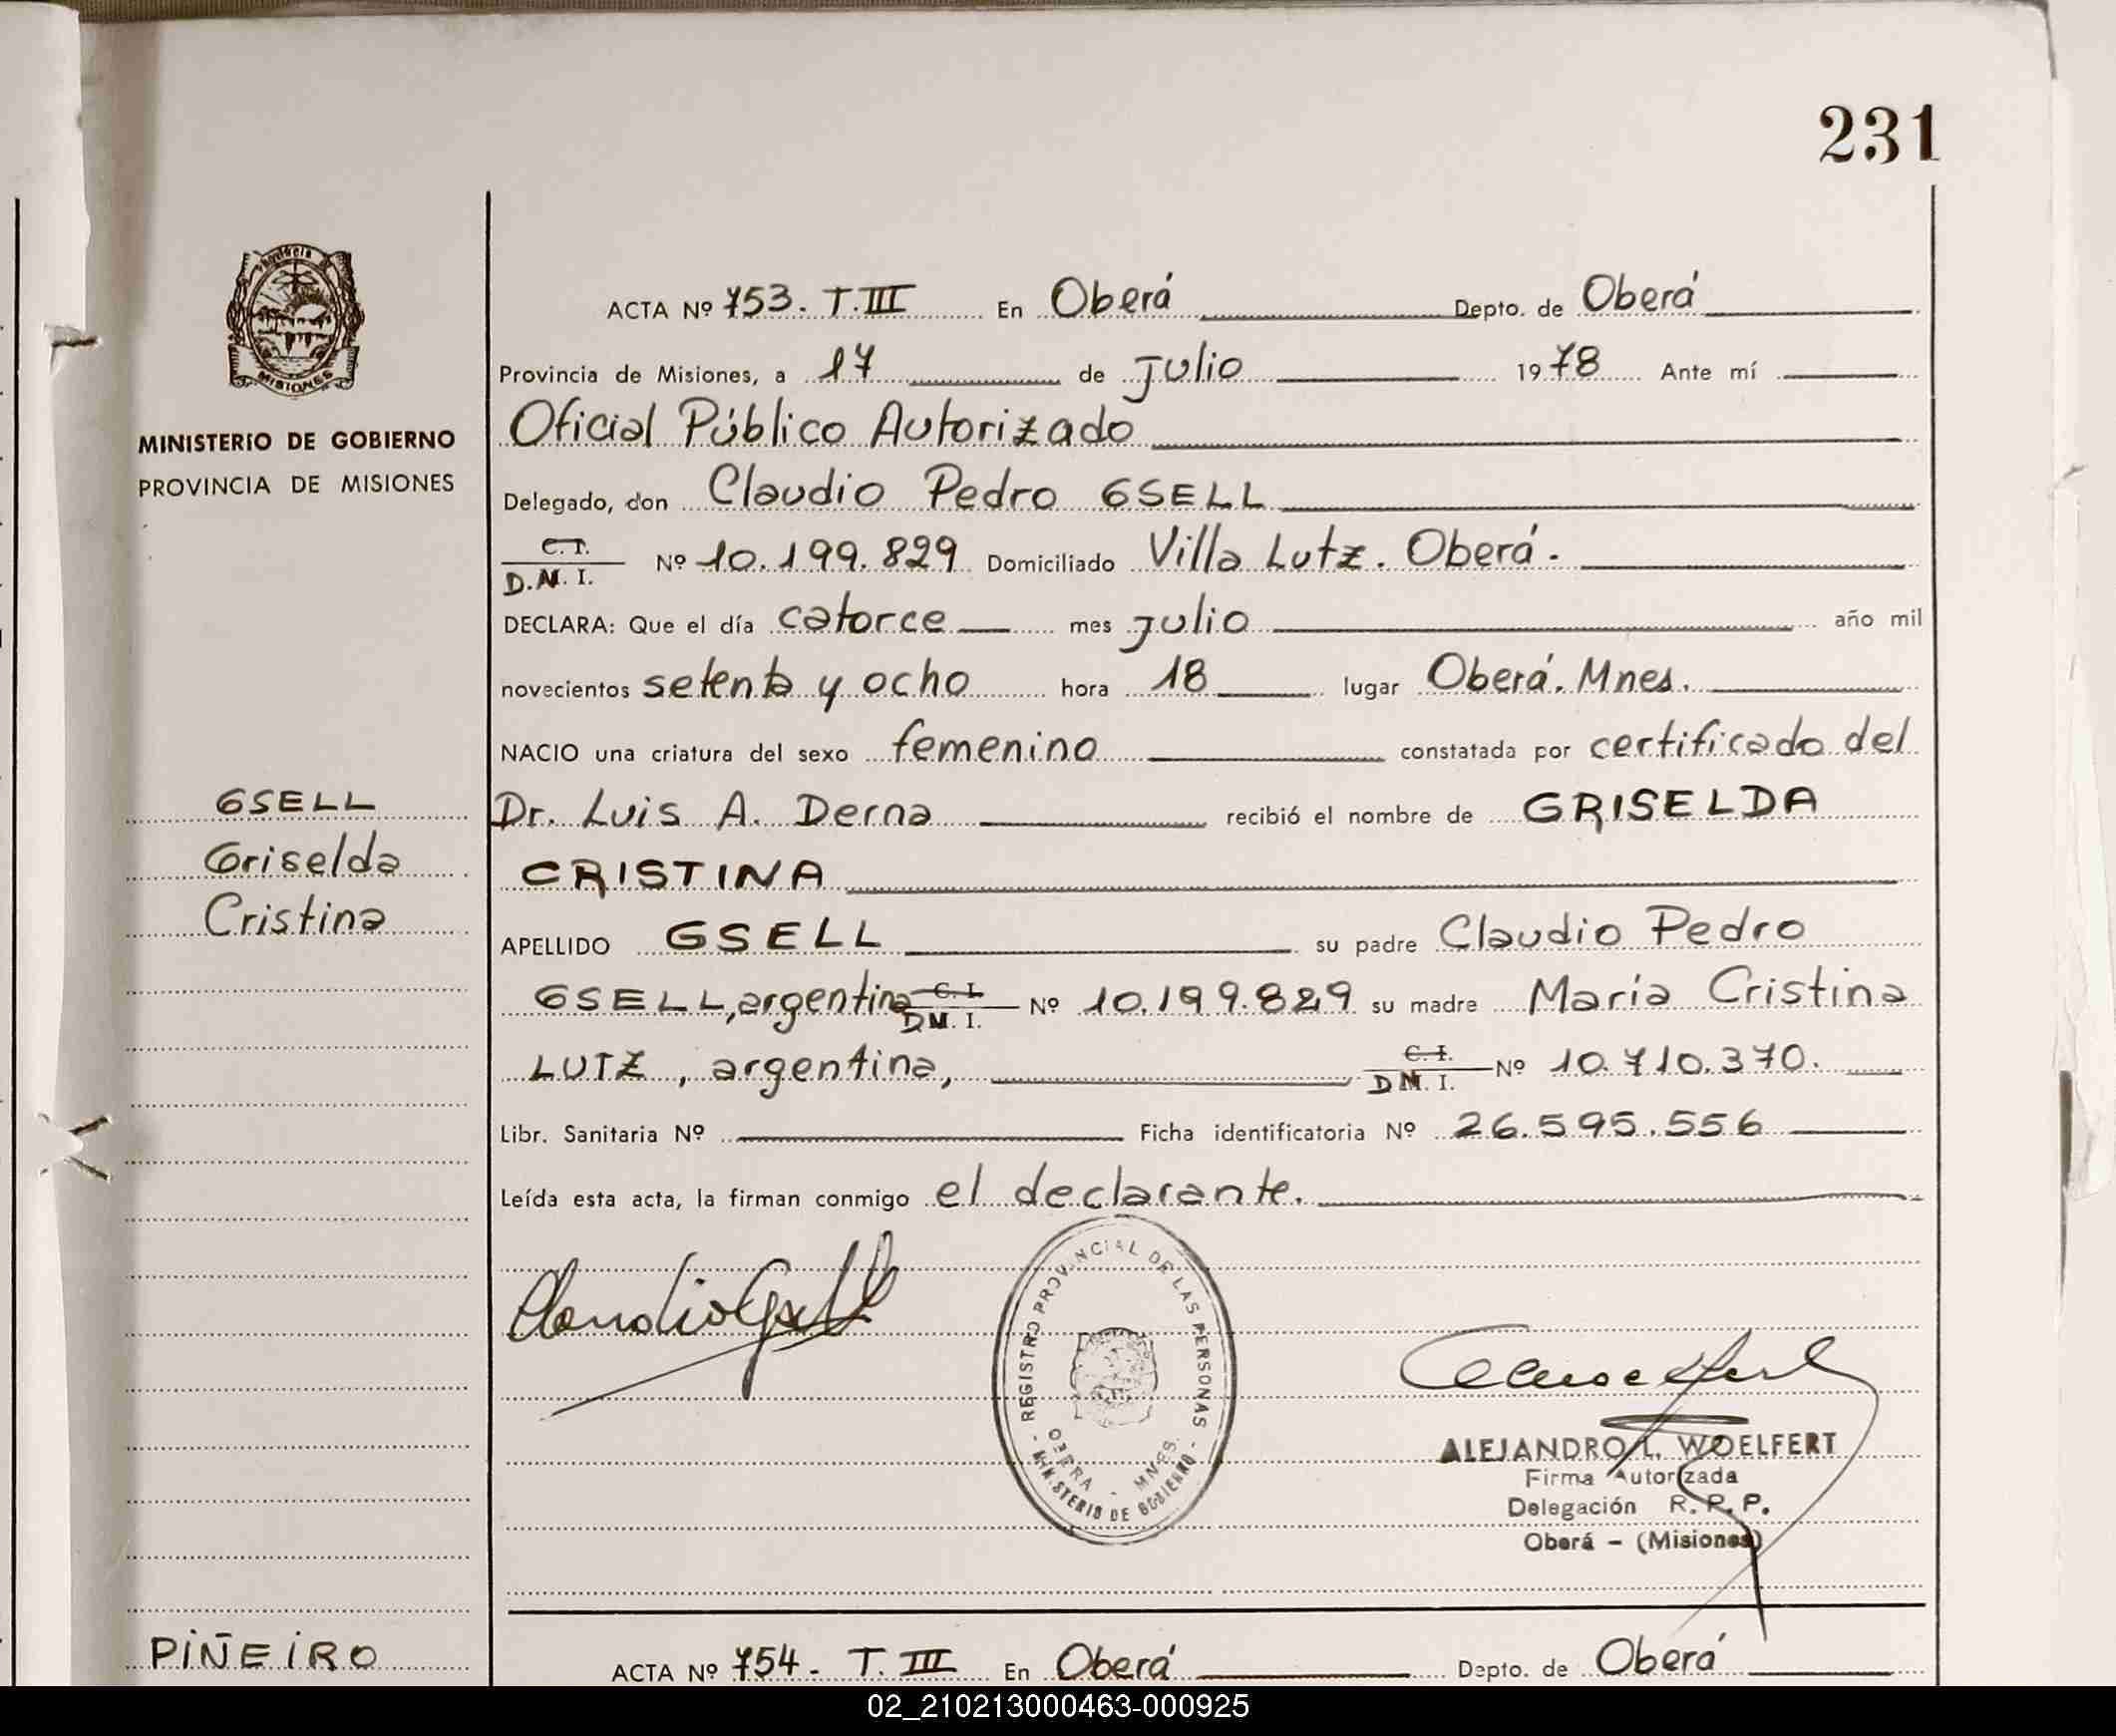 231
Provincia de
MISIONES
MINISTERIO DE GOBIERNO
PROVINCIA DE MISIONES
GSELL
Griselda
Cristina
ACTA Nº 753. T.III En Oberá Depto. de Oberá
Provincia de Misiones, a 17 de julio 1978 Ante mí
Oficial Público Autorizado
Delegado, don Claudio Pedro GSELL
C.I.
D.N.I. Nº 10.199.829 Domiciliado Villa Lutz. Oberá.
DECLARA: Que el día catorce mes julio año mil
novecientos setenta y ocho hora 18 lugar Oberá. Mnes.
NACIO una criatura del sexo femenino constatada por certificado del
Dr. Luis A. Derna recibió el nombre de GRISELDA
CRISTINA
APELLIDO GSELL su padre Claudio Pedro
GSELL, argentina C.I. D.N.I. Nº 10.199.829 su madre María Cristina
LUTZ, argentina, C.I. D.N.I. Nº 10.710.370.
Libr. Sanitaria Nº Ficha identificatoria Nº 26.595.556
Leída esta acta, la firman conmigo el declarante.
Claudio Gsell
REGISTRO PROVINCIAL DE LAS PERSONAS
OBERA - MNES.
- MINISTERIO DE GOBIERNO -
ALEJANDRO L. WOELFERT
Firma Autorizada
Delegación R. P. P.
Oberá - (Misiones)
PIÑEIRO
ACTA Nº 754. T. III En Oberá Depto. de Oberá
02_210213000463-000925